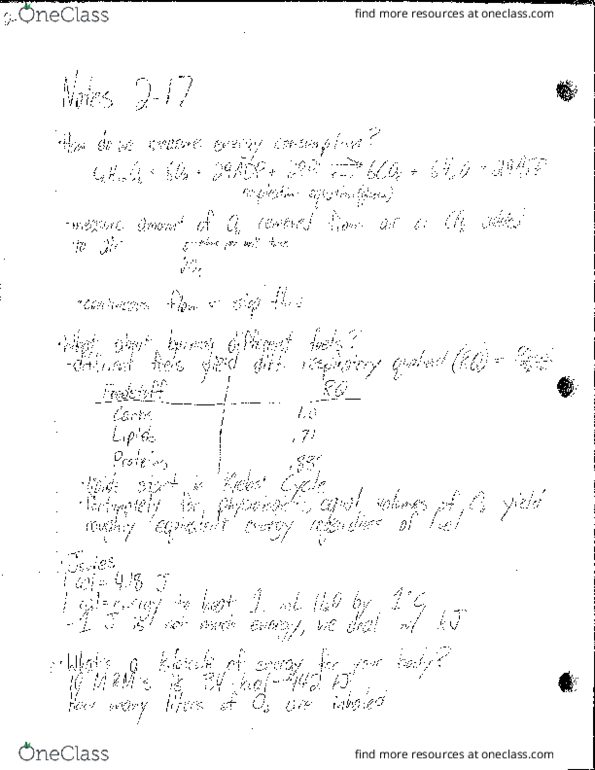 OneClass
find more resources at oneclass.com
Notes 2-17
How do we measure energy consumption?
+ 6O2 + 29ADP + 29P → 6CO2 + 6H2O + 29ATP
respiration equation
-measure amount of O2 removed from air or CO2 added
to air
-continuous flow or stop flow
What about burning different fuels?
-different fuels yield diff. respiratory quotient (RQ) =
Foodstuff RQ
Carbs 1.0
Lipids .71
Proteins .835
-lipids start in Krebs' Cycle
-Fortunately for physiologists, equal volumes of O2 yield
roughly equivalent energy regardless of fuel
Joules
1 cal = 4.18 J
1 cal = energy to heat 1 mL H2O by 1°C
-1 J is not much energy, we deal w/ kJ
What's a kilojoule of energy for your body?
10 M&M's is 34 kcal = 142 kJ
How many liters of O2 are inhaled
OneClass
find more resources at oneclass.com